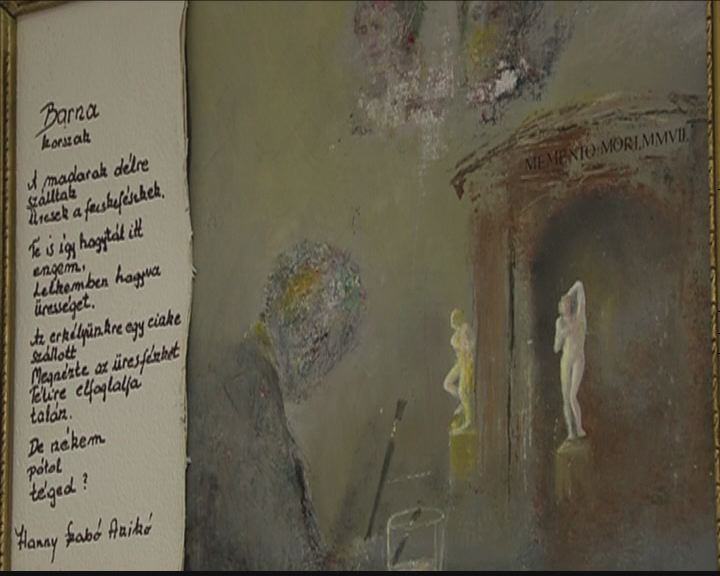 Barna
korszak
A madarak délre
szálltak
Üresek a fecskefészkek.
Te is így hagytál itt
engem,
Lelkemben hagyva
ürességet.
Az erkélyünkre egy cinke
szállott
Megnézte az üres fészket
Télire elfoglalja
talán.
De nékem
pótol
téged?
Hanny Szabó Anikó
MEMENTO MORI.MMVII.